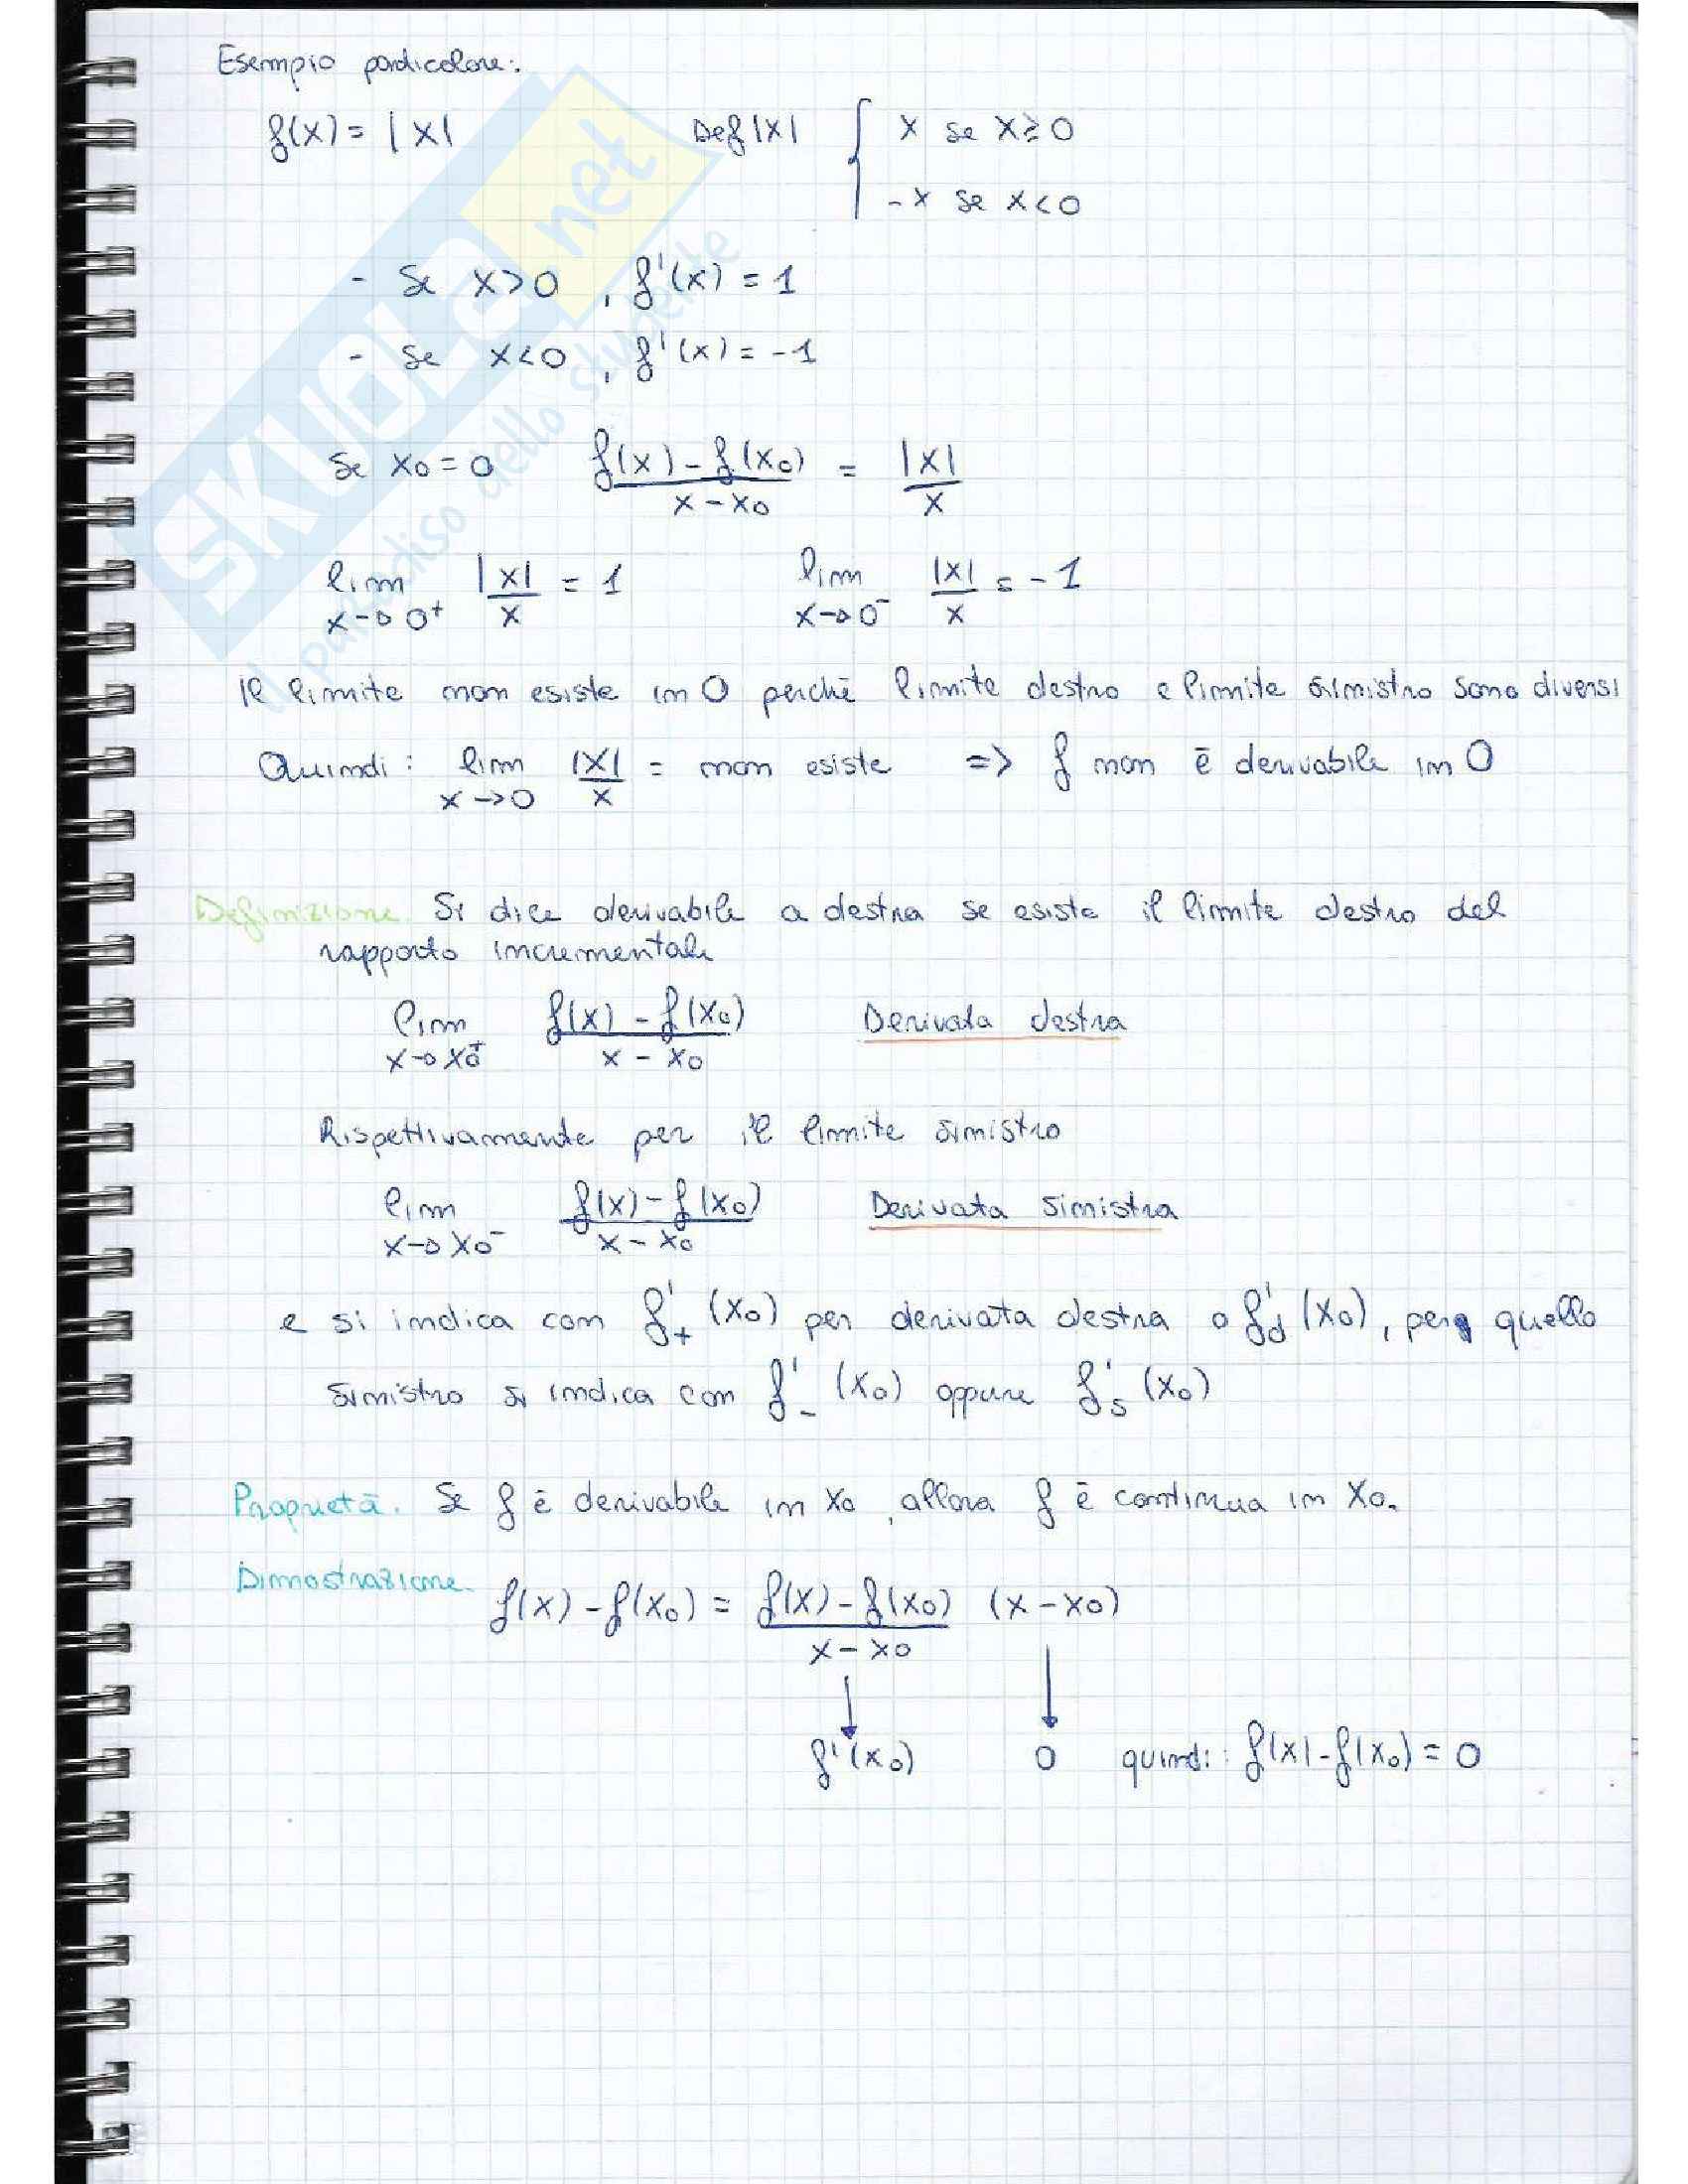 Esempio particolare:
f(x) = |x|   Def |x| { x se x ≥ 0
-x se x < 0
- Se x > 0 , f'(x) = 1
- Se x < 0 , f'(x) = -1
Se x0 = 0   f(x) - f(x0) / x - x0 = |x| / x
lim x→0+ |x| / x = 1   lim x→0- |x| / x = -1
Il limite non esiste in 0 perchè limite destro e limite sinistro sono diversi
Quindi: lim x→0 |x| / x = non esiste => f non è derivabile in 0
Definizione. Si dice derivabile a destra se esiste il limite destro del
rapporto incrementale
lim x→x0+ f(x) - f(x0) / x - x0   Derivata destra
Rispettivamente per il limite sinistro
lim x→x0- f(x) - f(x0) / x - x0   Derivata sinistra
e si indica con f'+ (x0) per derivata destra o f'd (x0), per quello
sinistro si indica con f'- (x0) oppure f's (x0)
Proprietà. Se f è derivabile in x0, allora f è continua in x0.
Dimostrazione. f(x) - f(x0) = f(x) - f(x0) / x - x0 (x - x0)
↓ ↓
f'(x0)   0   quindi: f(x) - f(x0) = 0
SKUOLa.net
il paradiso dello studente